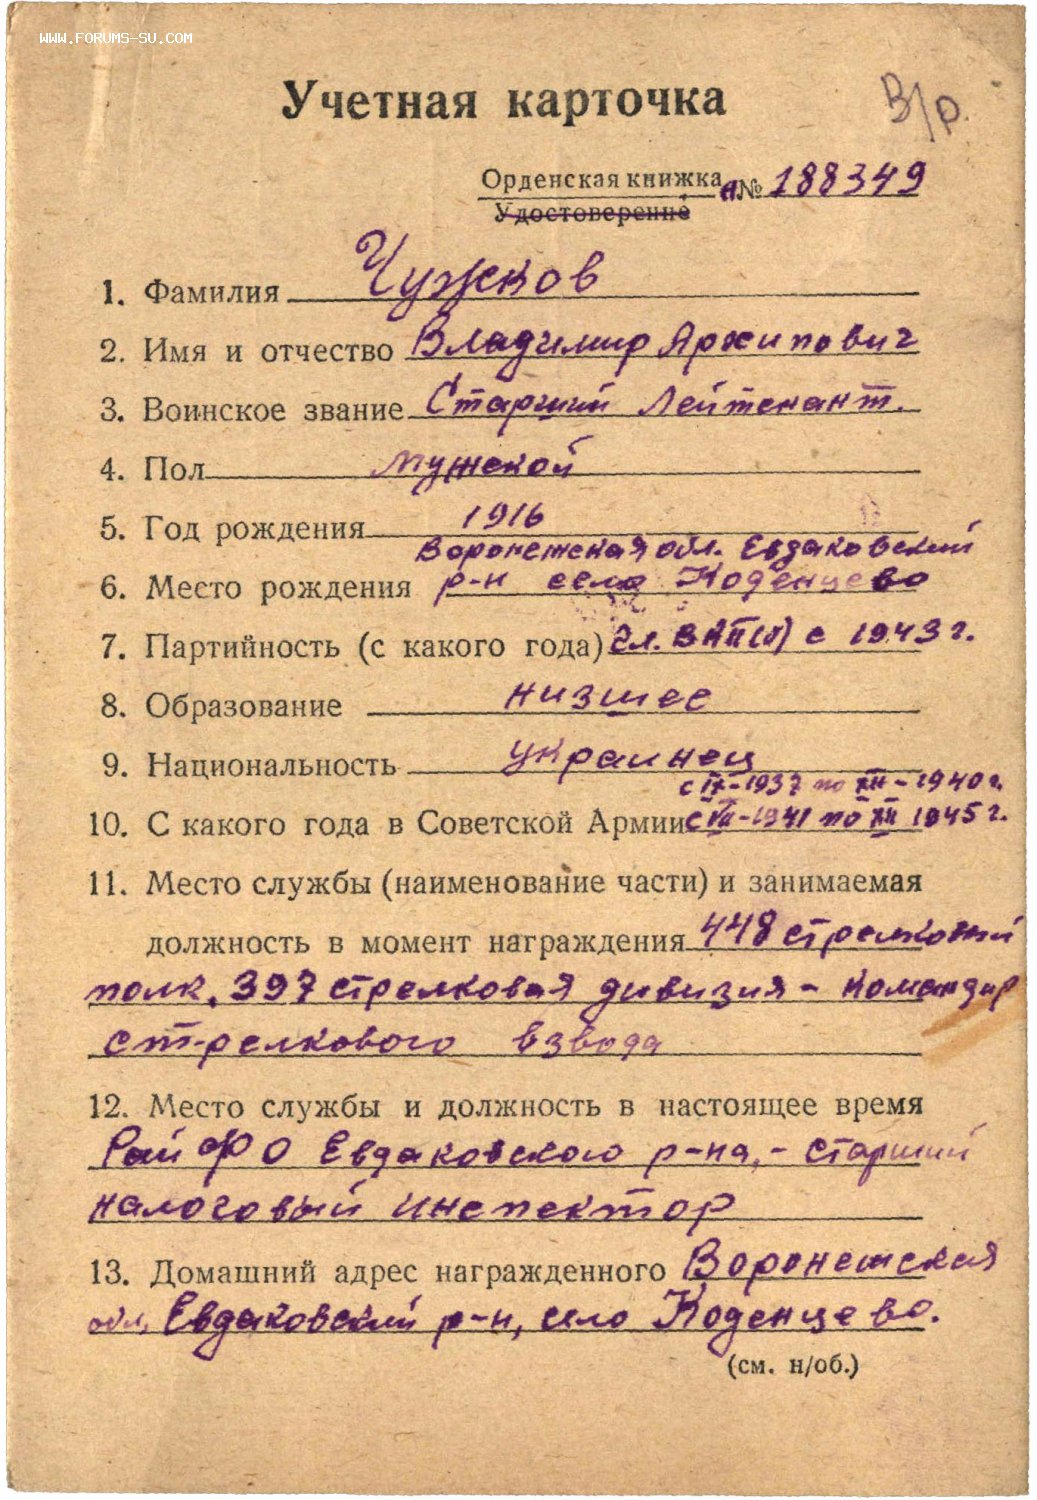 WWW.FORUMS-SU.COM
Учетная карточка
В/р.
Орденская книжка А№ 188349
Удостоверение
1. Фамилия Чужков
2. Имя и отчество Владимир Архипович
3. Воинское звание Старший Лейтенант.
4. Пол мужской
5. Год рождения 1916
Воронежская обл. Евдаковский
6. Место рождения р-н село Коденцево
7. Партийность (с какого года) Чл. ВКП(б) с 1943 г.
8. Образование низшее
9. Национальность украинец
с IX-1937 по XII-1940 г.
10. С какого года в Советской Армии с VII-1941 по XII 1945 г.
11. Место службы (наименование части) и занимаемая
должность в момент награждения 448 стрелковый
полк. 397 стрелковая дивизия - командир
стрелкового взвода
12. Место службы и должность в настоящее время
РайФО Евдаковского р-на, - старший
налоговый инспектор
13. Домашний адрес награжденного Воронежская
обл, Евдаковский р-н, село Коденцево.
(см. н/об.)